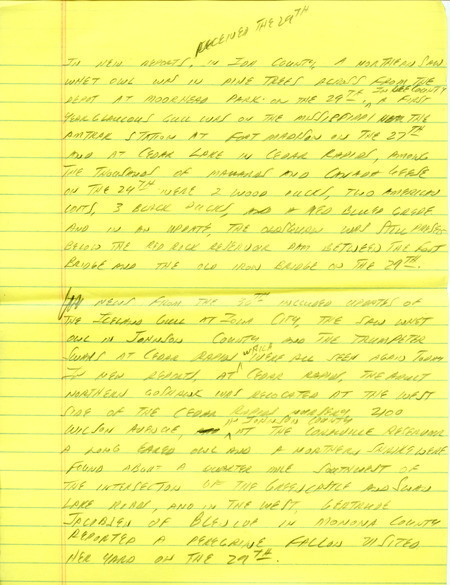 RECEIVED THE 29TH
IN NEW REPORTS, IN IDA COUNTY, A NORTHERN SAW
WHET OWL WAS IN PINE TREES ACROSS FROM THE
DEPOT AT MOORHEAD PARK ON THE 29TH. IN LEE COUNTY A FIRST
YEAR GLAUCOUS GULL WAS ON THE MISSISSIPPI THE
AMTRAK STATION AT FORT MADISON ON THE 27TH
AND AT CEDAR LAKE IN CEDAR RAPIDS, AMONG
THE THOUSANDS OF MALLARDS AND CANADA GEESE
ON THE 29TH WERE 2 WOOD DUCKS, TWO AMERICAN
COOTS, 3 BLACK DUCKS, A RED BILLED GREBE
AND IN AN UPDATE, THE OLDSQUAW WAS STILL PRESENT
BELOW THE RED ROCK RESERVOIR DAM BETWEEN THE FOOT
BRIDGE AND THE OLD IRON BRIDGE ON THE 29TH.
NEWS FROM THE 30TH INCLUDED UPDATES OF
THE ICELAND GULL AT IOWA CITY, THE SAW WHET
OWL IN JOHNSON COUNTY AND THE TRUMPETER
SWANS AT CEDAR RAPIDS WHICH WERE ALL SEEN AGAIN TODAY
IN NEW REPORTS, AT CEDAR RAPIDS, THE ADULT
NORTHERN GOSHAWK WAS RELOCATED AT THE WEST
SIDE OF THE CEDAR RAPIDS NURSERY 2100
WILSON AVENUE, IN JOHNSON COUNTY AT THE CORALVILLE RESERVOIR
A LONG EARED OWL AND A NORTHERN SHRIKE WERE
FOUND ABOUT A QUARTER MILE SOUTHWEST OF
THE INTERSECTION OF THE GREENCASTLE AND SWAN
LAKE ROADS, AND IN THE WEST, GERTRUDE
JACOBSEN OF BLENCOE IN MONONA COUNTY
REPORTED A PEREGRINE FALCON VISITED
HER YARD ON THE 29TH.